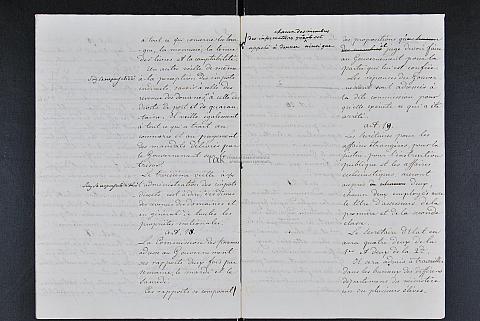 à tout ce qui concerne les ban-
que, la monnaie, la tenue
des livres et la comptabilité.
veille de même
à la perception des impots
indirects, savoir à celle des
revenus des douanes, à celle des
droits de port et de quaran-
taine. Il veille également
à tout ce qui a trait au
commerce et au payement
des mandats délivrés par
le Gouvernement sur le
trésor.
Le troisième veille à
l'administration des impots
directs, des dîmes
revenus de domaines et
en général de toutes les
propriétés nationales.
a.t. 18.
La Commission des finances
adresse au Gouvernement
ses rapports deux fois par
semaine, le mardi et le
samedi.
Ces rapports se composent
chacun des membres
appelé à donner ainsi que
des propositions que
juge devoir faire
au Gouvernement pour la
partie qui lui est confiée.
Les réponses du Gouver-
nement sont adressées à
la dite commission pour
qu'elle exécute ce qui a été
arrêté.
a.t. 19.
Les Secrétaires pour les
affaires étrangères, pour la
justice, pour l'instruction
publique et les affaires
ecclésiastiques, auront
auprès deux
employés avec
le titre d'assesseurs de la
première et de la seconde
classe.
Le Secrétaire d'Etat en
aura quatre deux de la
1re et deux de la 2de
Il sera admis à travailler
dans les bureaux des différens
départemens du ministère
un ou plusieurs élèves.